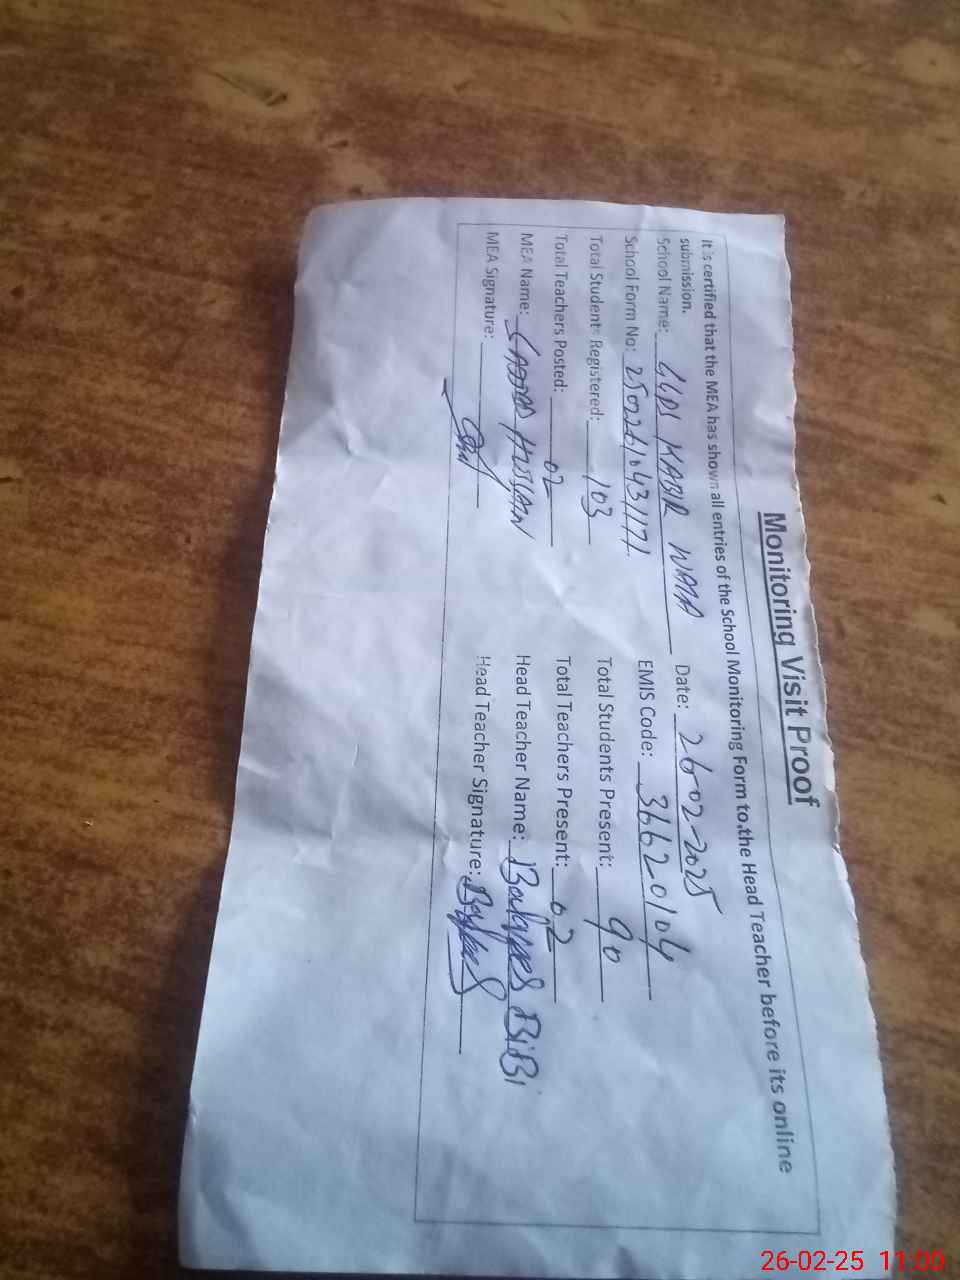 Monitoring Visit Proof
It is certified that the MEA has shown all entries of the School Monitoring Form to the Head Teacher before its online
submission.
School Name: GGPS KABIR WALA Date: 26-02-2025
School Form No: 250226104311171 EMIS Code: 36620104
Total Students Registered: 103 Total Students Present: 90
Total Teachers Posted: 02 Total Teachers Present: 02
MEA Name: HUSSAIN Head Teacher Name: Balqees BiBi
MEA Signature: Head Teacher Signature:
26-02-25 11:00